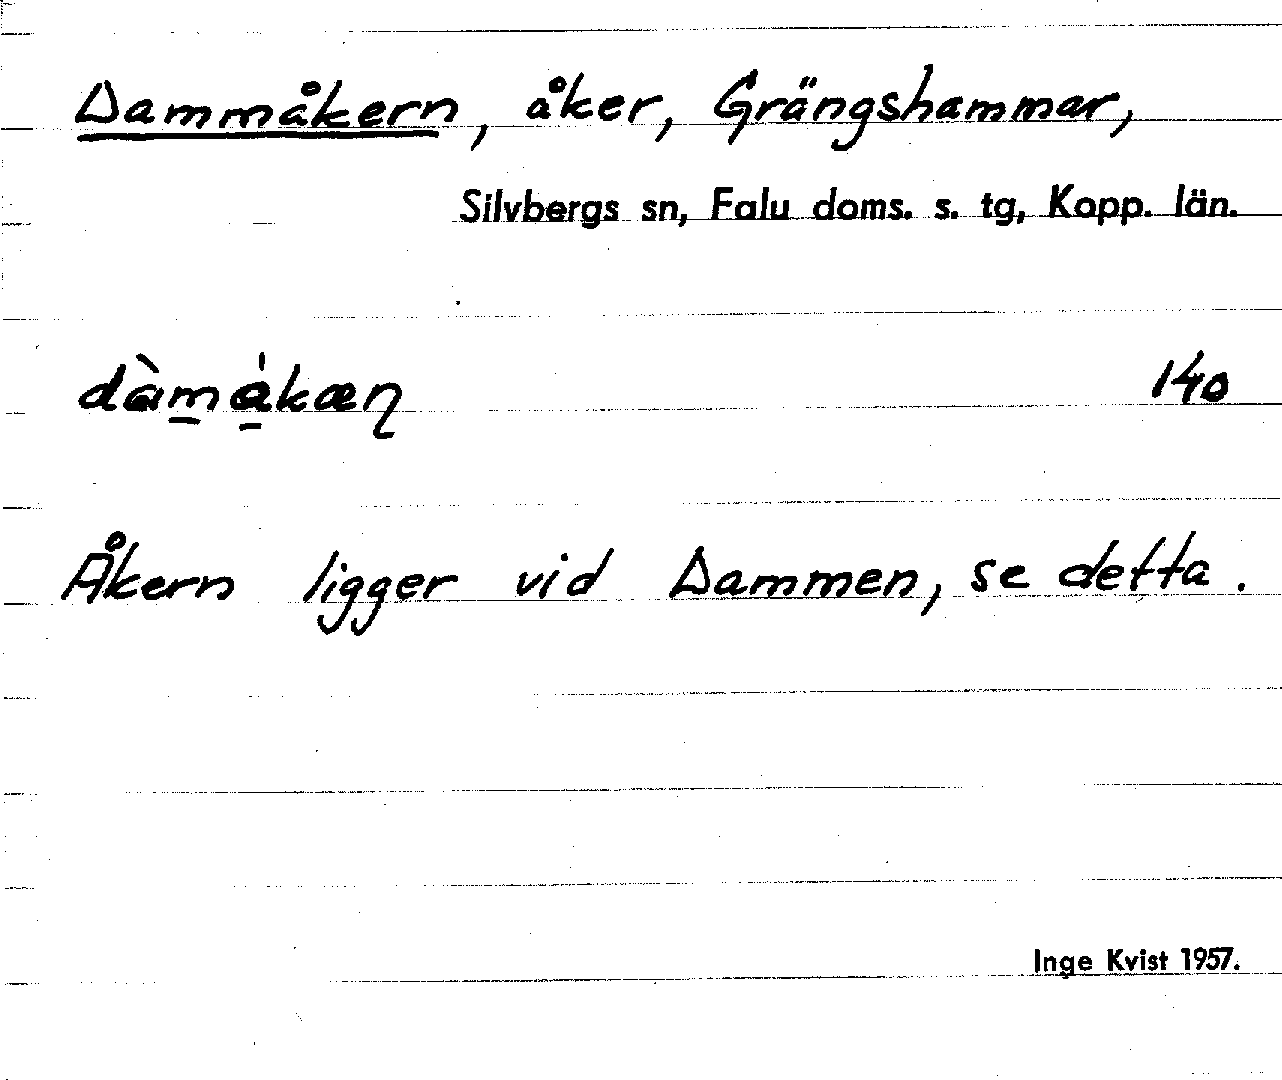 Dammåkern, åker, Grängshammar,
Silvbergs sn, Falu doms. s. tg, Kopp. län.
dàm̲å̲kæɳ 140
Åkern ligger vid Dammen, se detta.
Inge Kvist 1957.